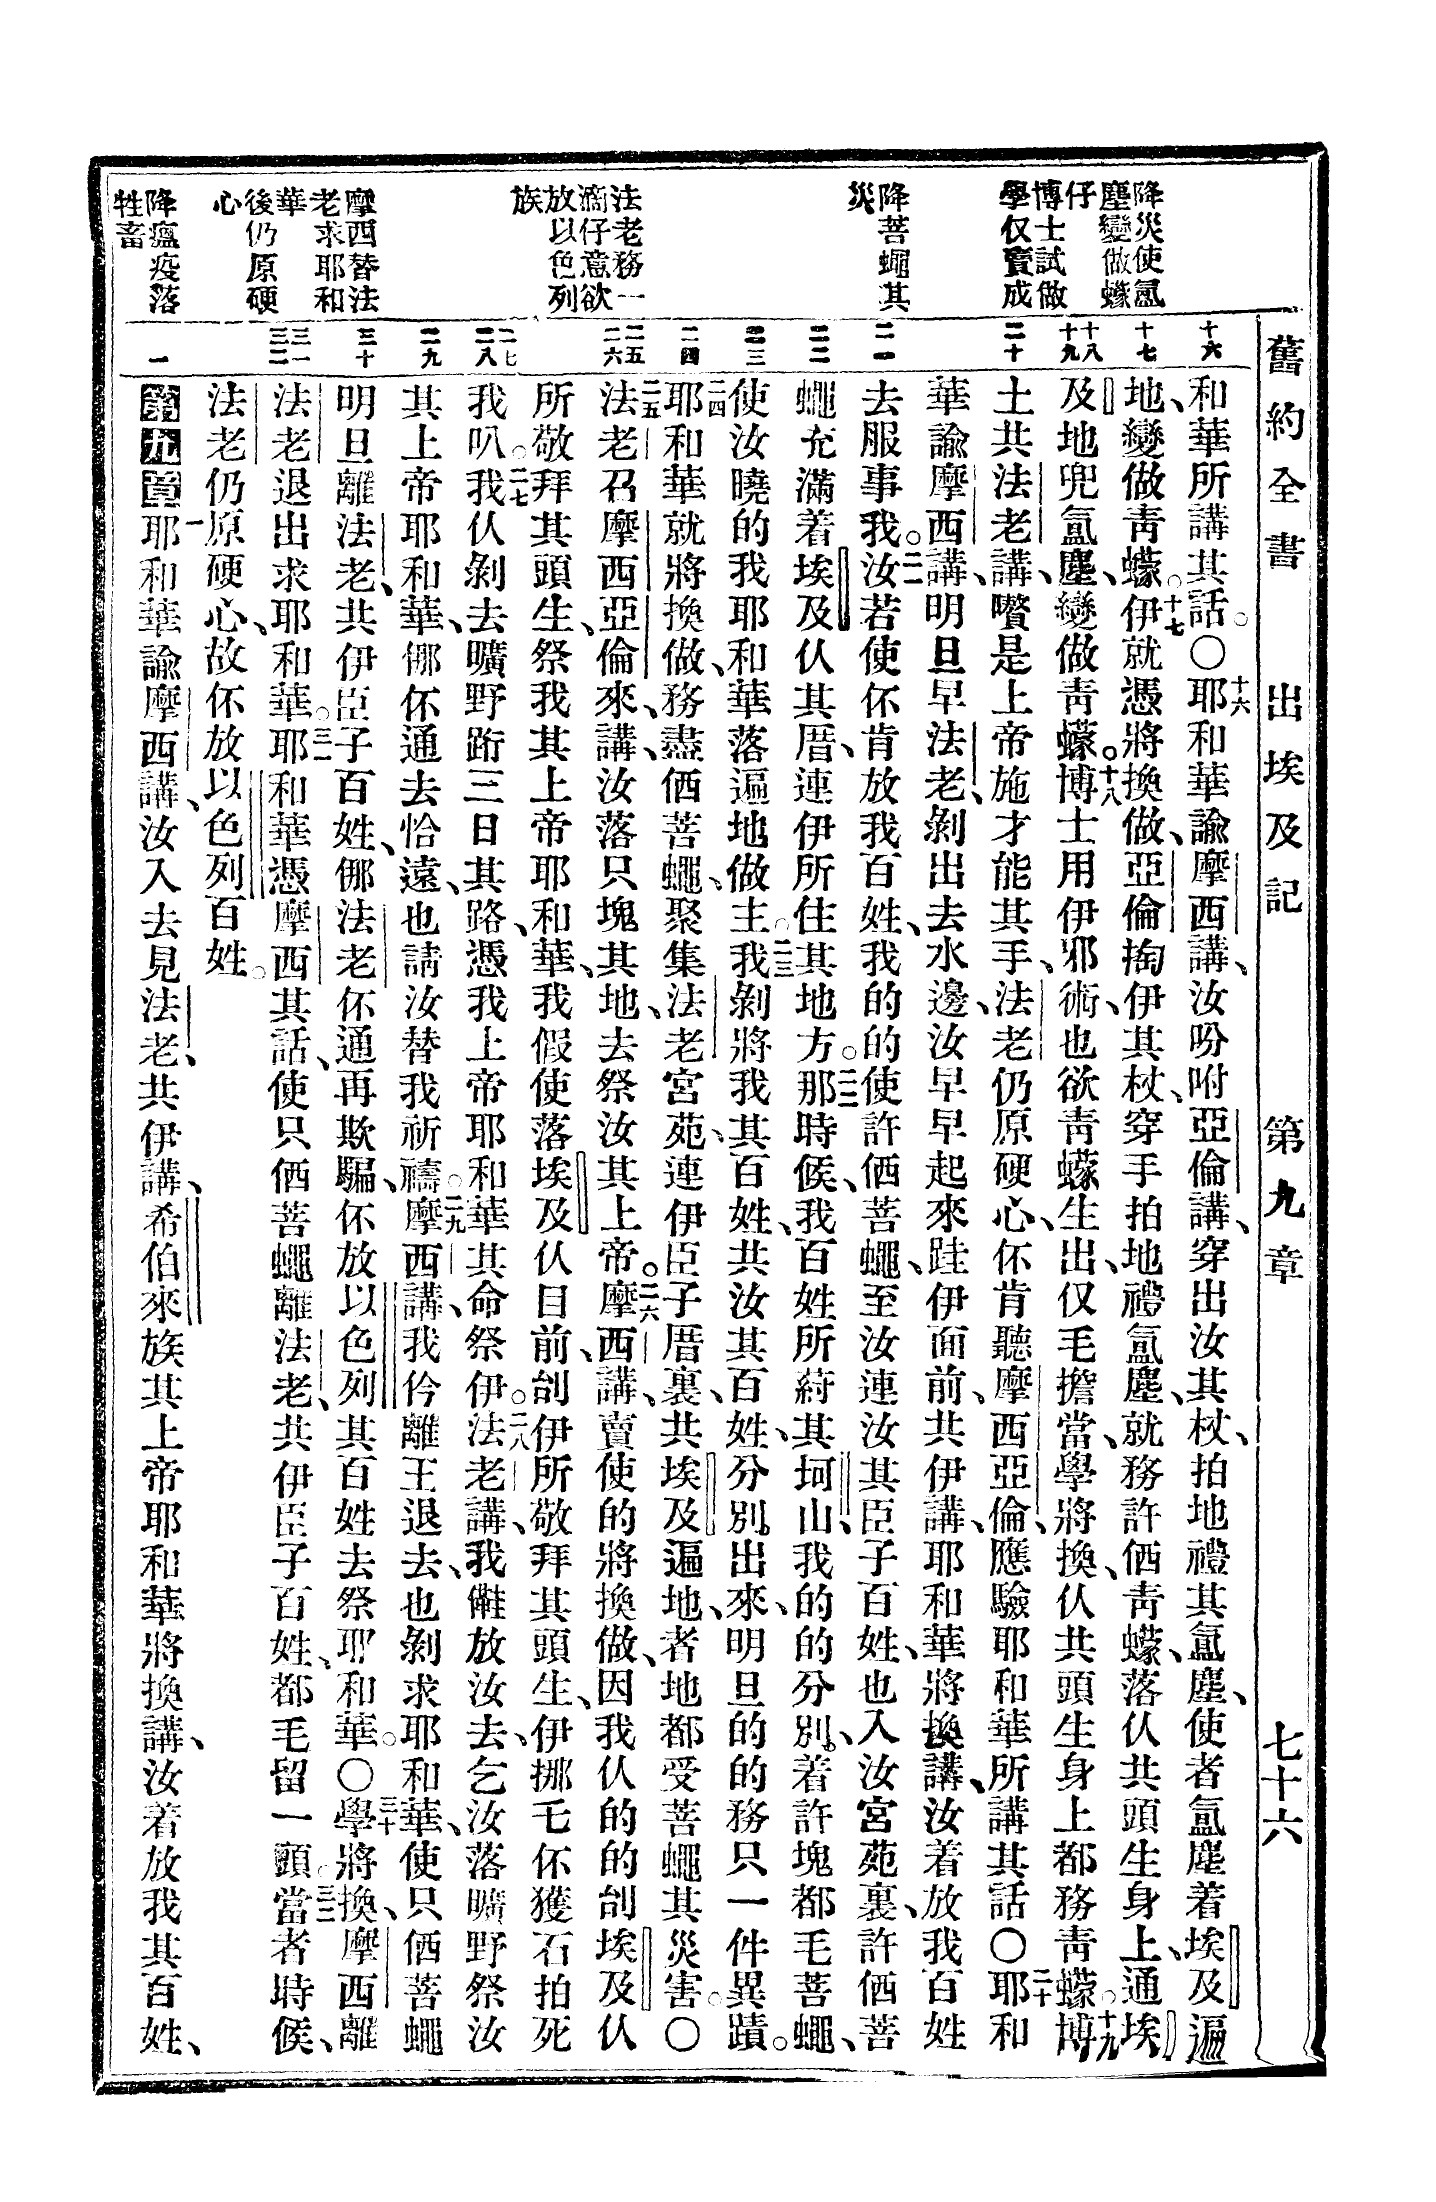 舊約全書 出埃及記 第九章 七十六
降災使氲
塵變做蠓
仔
博士試做
學仅賣成
降菩蠅其
災
法老務一
滴仔意欲
放以色列
族
摩西替法
老求耶和
華
後仍原硬
心
降瘟疫落
牲畜
十六
十七
十八
十九
二十
二一
二二
二三
二四
二五
二六
二七
二八
二九
三十
三一
三二
一
和華所講其話。〇十六耶和華諭摩西講、汝吩咐亞倫講、穿出汝其杖、拍地禮其氲塵、使者氲塵着埃及遍
地、變做青蠓。十七伊就憑將換做、亞倫掏伊其杖、穿手拍地禮氲塵、就務許俪青蠓、落仈共頭生身上、通埃
及地兜氲塵、變做青蠓。十八博士用伊邪術、也欲青蠓生出、仅毛擔當、學將換、仈共頭生身上都務青蠓。十九博
士共法老講、囋是上帝施才能其手、法老仍原硬心、伓肯聽摩西亞倫、應驗耶和華所講其話〇二十耶和
華諭摩西講、明旦早法老、剝出去水邊、汝早早起來、跬伊面前、共伊講、耶和華將換講、汝着放我百姓
去服事我。二一汝若使伓肯放我百姓、我的的使許俪菩蠅、至汝連汝其臣子百姓、也入汝宮苑裏、許俪菩
蠅充滿着埃及仈其厝、連伊所住其地方。二二那時候、我百姓所㣔其坷山、我的的分別。着許塊都毛菩蠅、
使汝曉的我耶和華落遍地做主。二三我剝將我其百姓、共汝其百姓、分別。出來、明旦的的務只一件異蹟。
二四耶和華就將換做、務盡俪菩蠅、聚集法老宮苑、連伊臣子厝裏、共埃及遍地、者地都受菩蠅其災害。〇
二五法老召摩西亞倫來、講、汝落只塊其地、去祭汝其上帝。二六摩西講、賣使的將換做、因我仈的的刣埃及仈
所敬拜其頭生、祭我其上帝耶和華、我假使落埃及仈目前、刣伊所敬拜其頭生、伊挪毛伓獲石拍死
我叭。二七我仈剝去曠野跡三日其路、憑我上帝耶和華其命祭伊。二八法老講、我㒁放汝去、乞汝落曠野祭汝
其上帝耶和華、㑚伓通去恰遠、也請汝替我祈禱。二九摩西講、我仱離王退去、也剝求耶和華、三十使只俪菩蠅
明旦離法老、共伊臣子百姓、㑚法老伓通再欺騙、伓放以色列其百姓去祭耶和華。〇學將換、摩西離
法老退出求耶和華。三一耶和華憑摩西其話、使只俪菩蠅離法老、共伊臣子百姓、都毛留一頭。三二當者時候、
法老仍原硬心、故伓放以色列百姓。
第九章一耶和華諭摩西講、汝入去見法老、共伊講、希伯來族其上帝耶和華將換講、汝着放我其百姓、